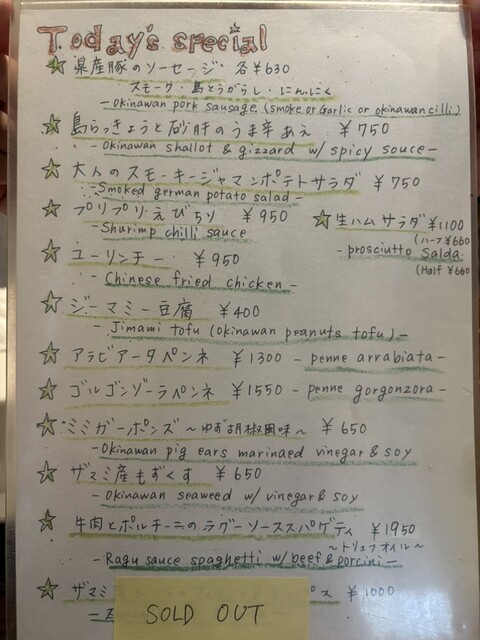 Today's special
県産豚のソーセージ 各¥630
スモーク・島とうがらし・にんにく
-Okinawan pork Sausage (smoke or Garlic or okinawan cilli)
島らっきょうと砂肝のうま辛あえ ¥750
-Okinawan shallot & gizzard w/ spicy souce-
大人のスモーキージャマンポテトサラダ ¥750
-Smoked german potato salad-
プリプリえびちり ¥950
-Shurimp chilli sauce
生ハムサラダ ¥1100
(ハーフ¥660
-prosciutto Salda.
(Half ¥660
ユーリンチー ¥950
-Chinese fried chicken-
ジーマミー豆腐 ¥400
-Jimami tofu (okinawan peanuts tofu)-
アラビアータペンネ ¥1300 -penne arrabiata-
ゴルゴンゾーラペンネ ¥1550 -penne gorgonzora-
ミミガーポンズ ~ゆず胡椒風味~ ¥650
-Okinawan pig ears marinaed vinegar & soy
ザマミ産もずくす ¥650
-Okinawan seaweed w/ vinegar & soy
牛肉とポルチーニのラグーソーススパゲティ ¥1950
~トリュフオイル~
-Ragu sauce spaghetti w/ beef & porcini-
ザマミ ¥1000
SOLD OUT